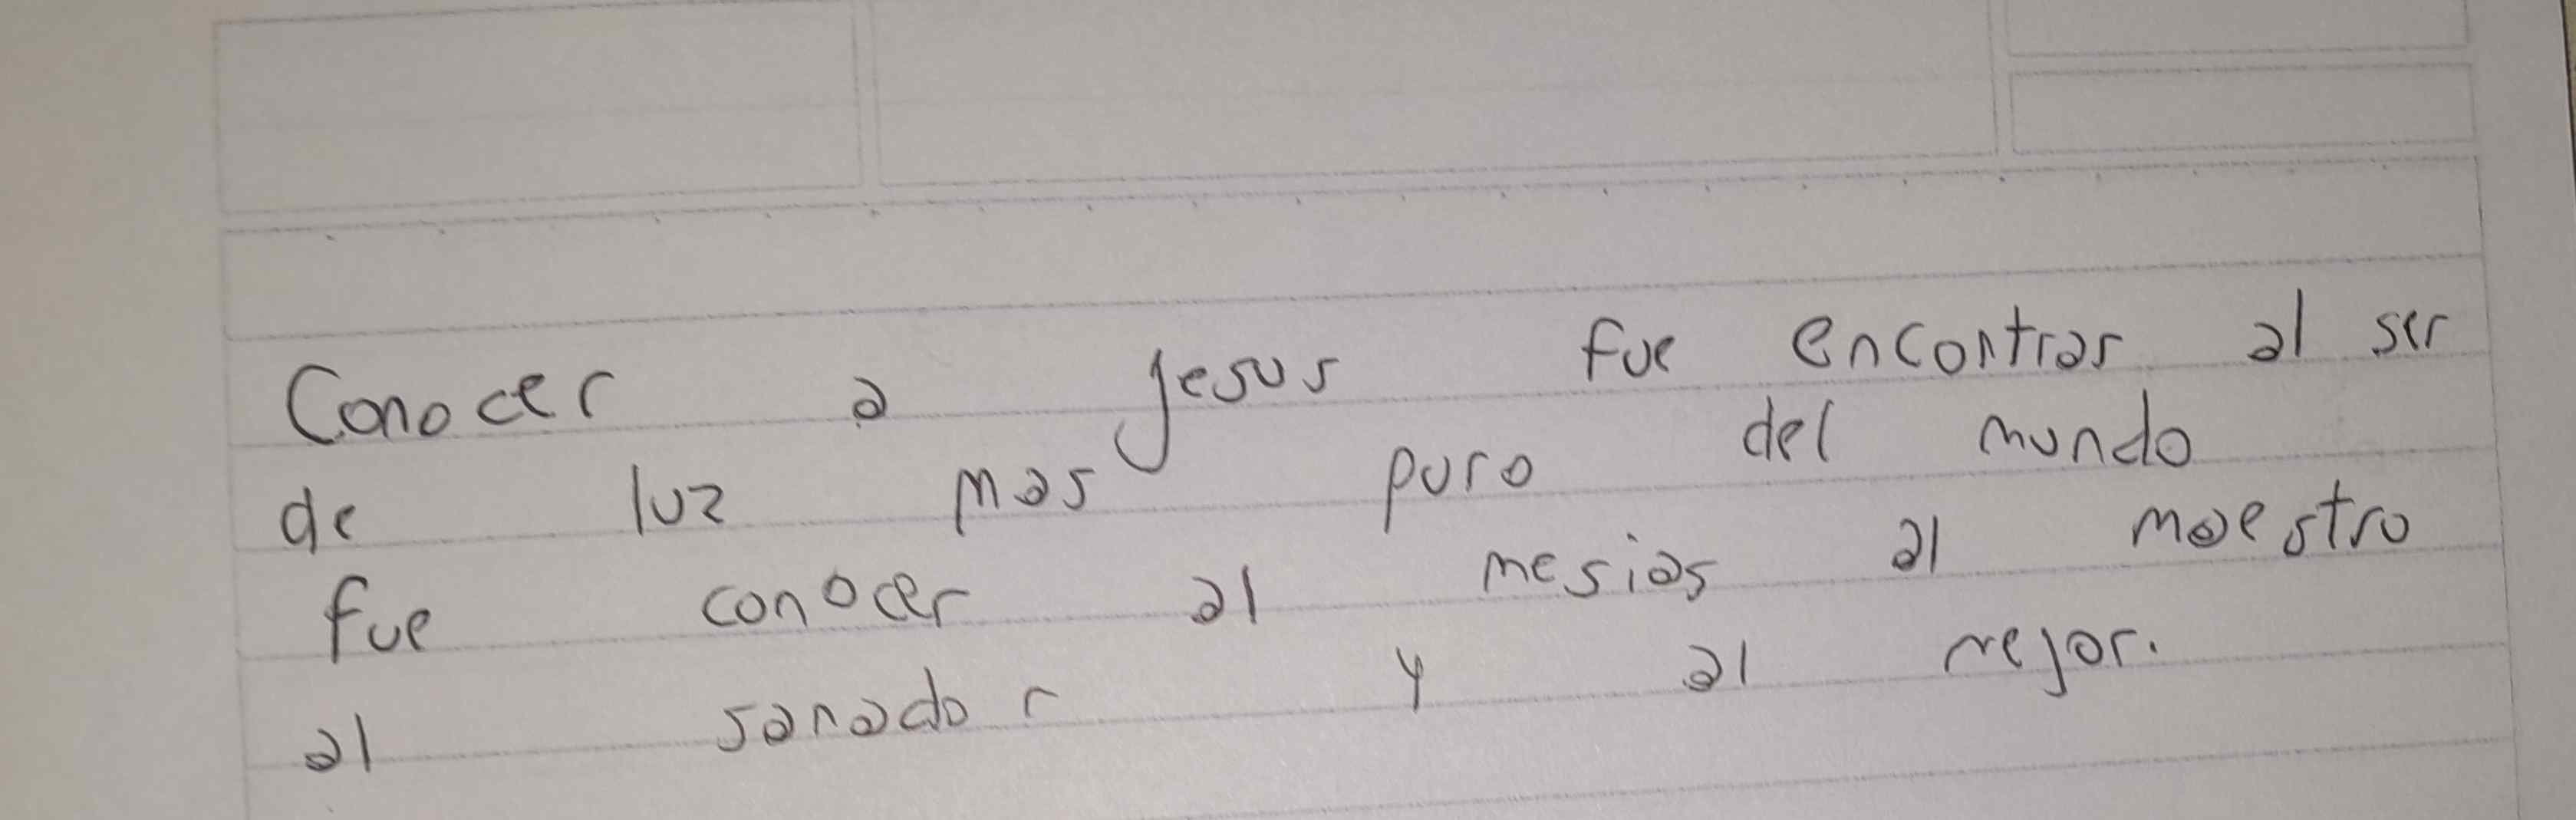 Conocer a Jesus fue encontrar al ser
de luz mas puro del mundo
fue conocer al mesias al maestro
al sanador y al mejor.